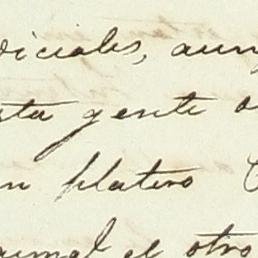 diciales, aun
sta gente
un platero
animal el otro